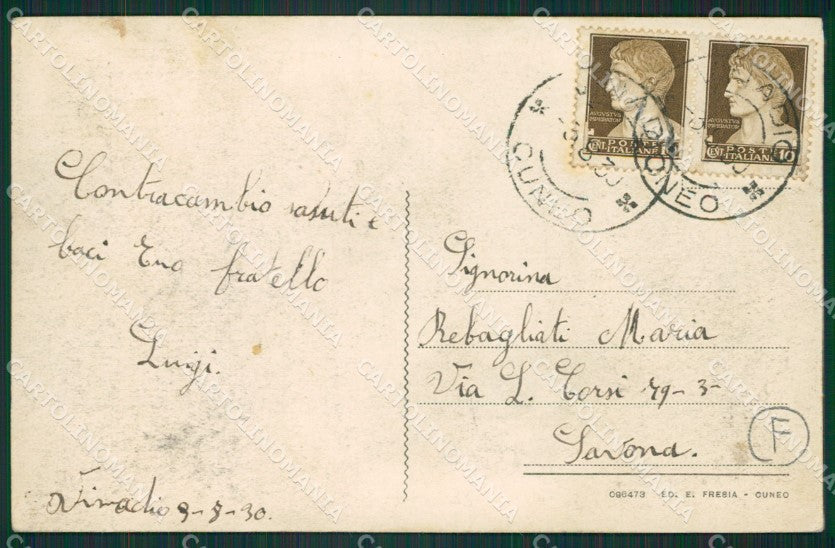 Contracambio saluti e
baci tuo fratello
Luigi.
Vinadio 9-8-30.
Signorina
Rebagliati Maria
Via L. Corsi 79-3-
Savona.
F
096473 ED. E. FRESIA - CUNEO
AUGUSTUS
IMPERATOR
CENT. POSTE
ITALIANE 10
AUGUSTUS
IMPERATOR
CENT. POSTE
ITALIANE 10
CUNEO
CUNEO
CARTOLINOMANIA